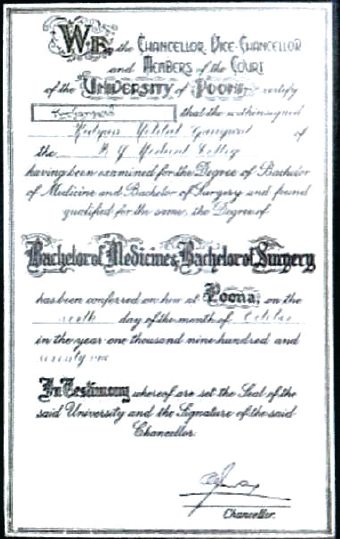 WE, the CHANCELLOR, VICE-CHANCELLOR
and MEMBERS of the COURT
of the UNIVERSITY of POONA, certify
that the withinsigned
of
the B J Medical College
having been examined for the Degree of Bachelor
of Medicine and Bachelor of Surgery and found
qualified for the same, the Degree of
Bachelor of Medicine & Bachelor of Surgery
has been conferred on her at Poona, on the
day of the month of October
in the year one thousand nine hundred and
In Testimony whereof are set the Seal of the
said University and the Signature of the said
Chancellor.
Chancellor.